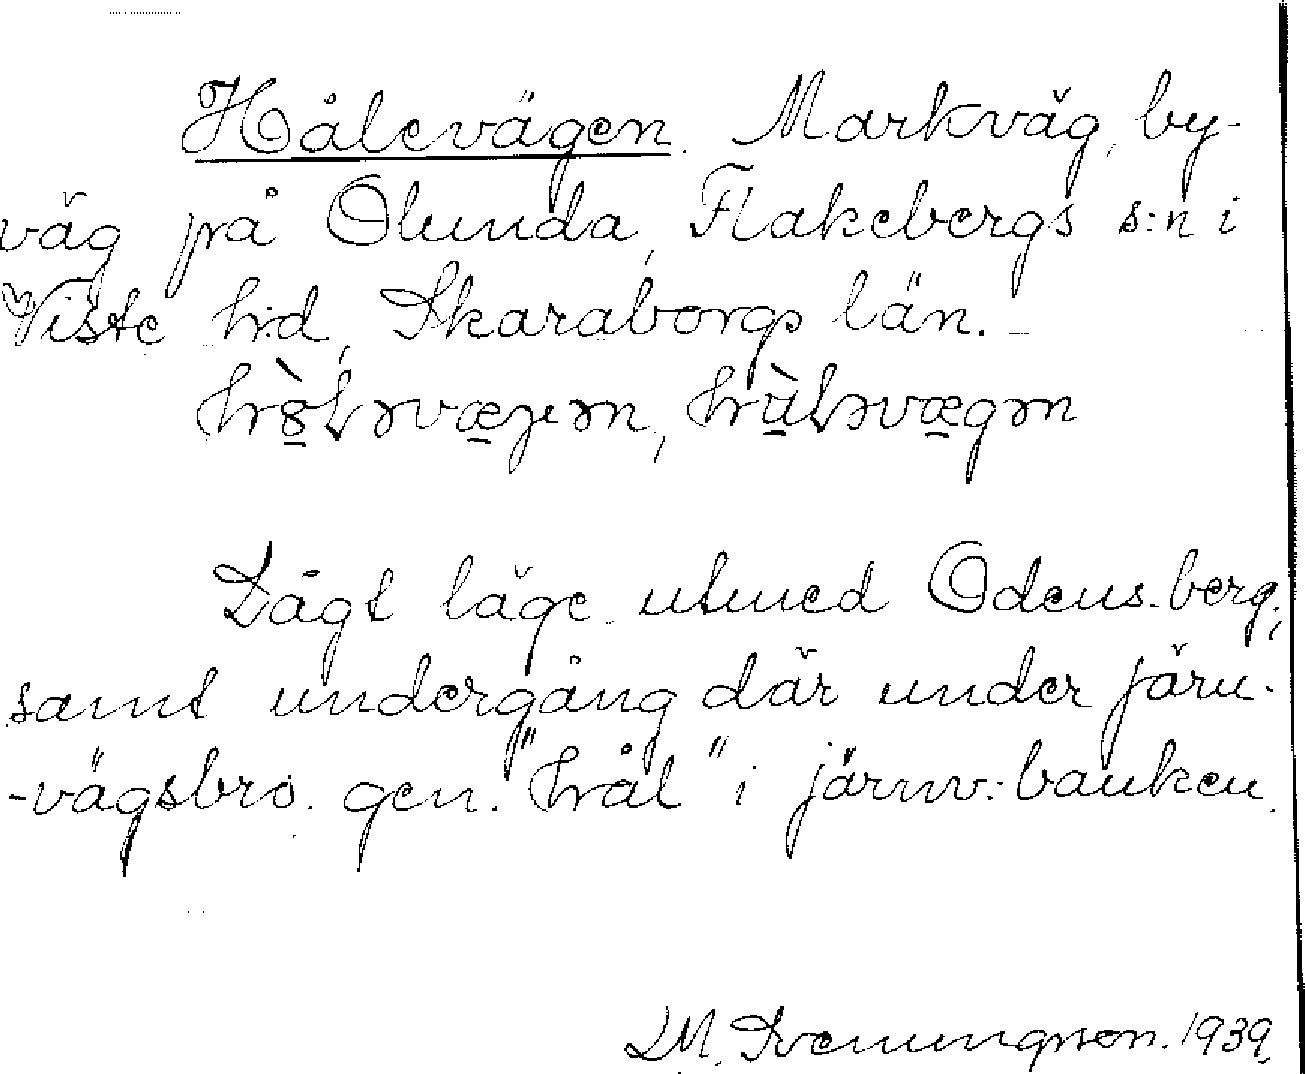 Hålevägen. Markväg, by-
väg på Olunda, Flakebergs s:n i
Viste h:d, Skaraborgs län. -

Lågt läge utmed Odens-berg,
samt undergång där under järn-
-vägsbro. gen. "hål" i järnv:-banken.
L M. Svenungsson. 1939.